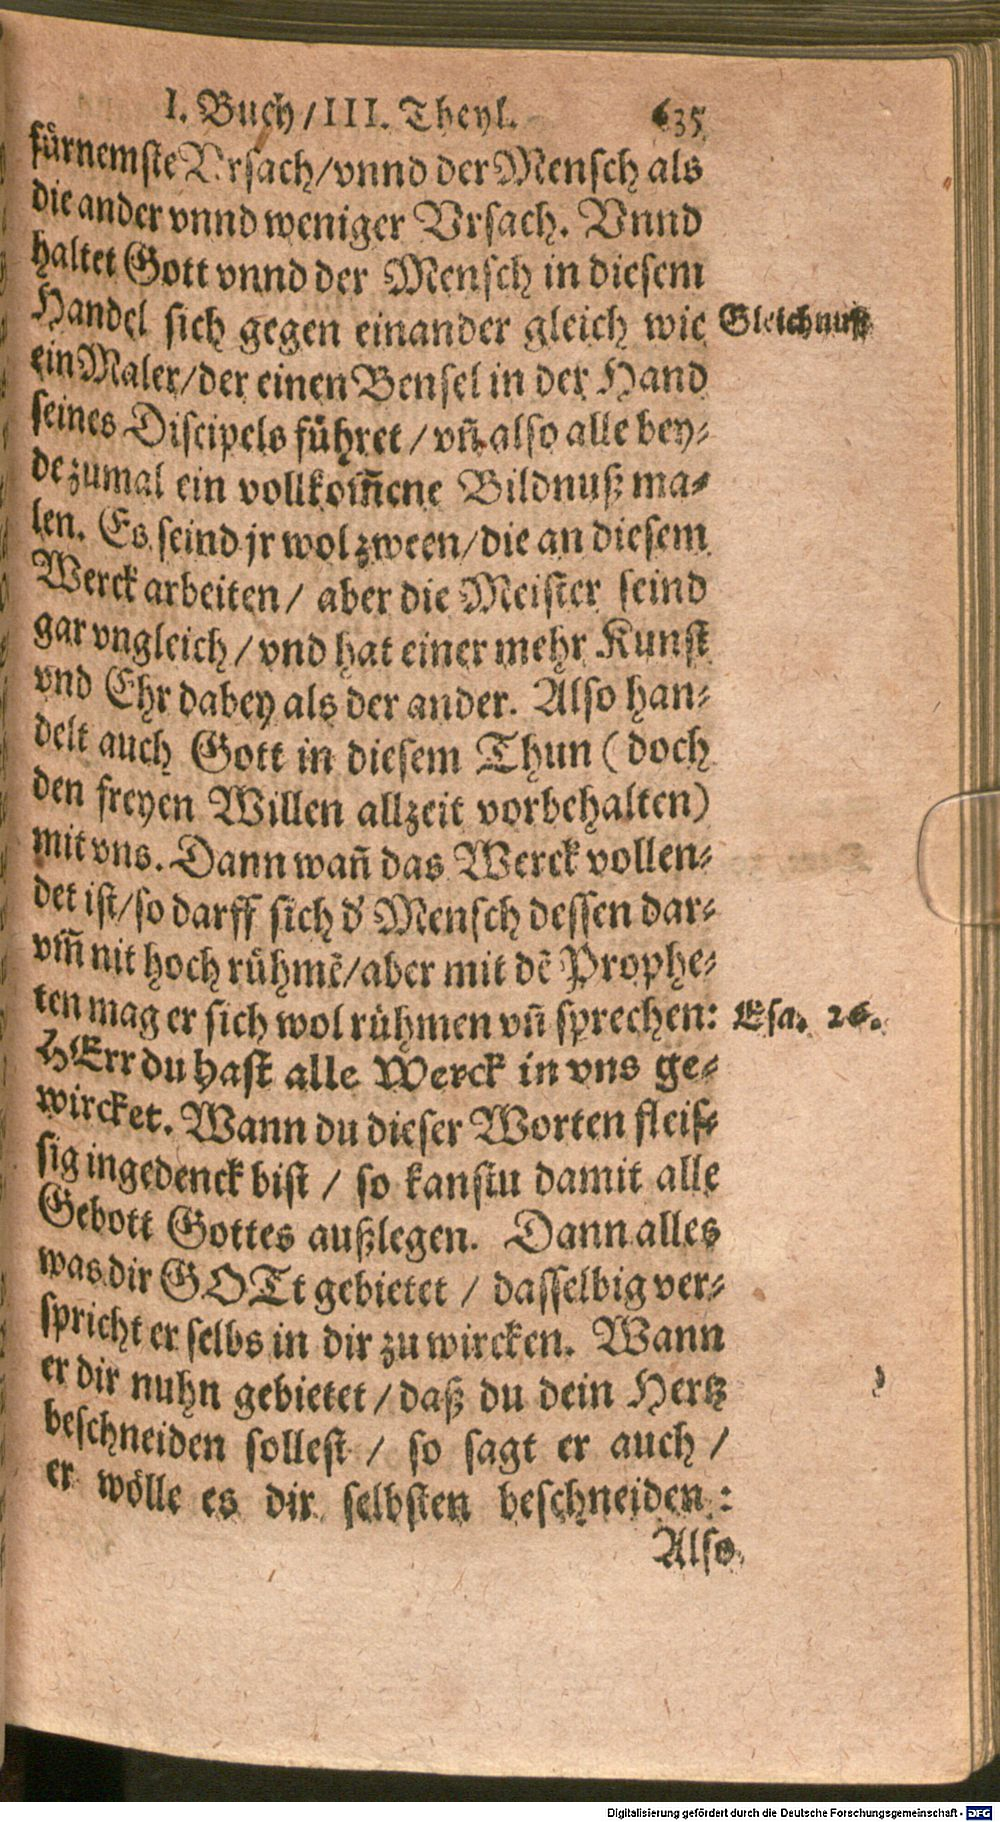 I. Buch / III. Theyl. 635
fürnemste Vrsach / vnnd der Mensch als
die ander vnnd weniger Vrsach. Vnnd
haltet Gott vnnd der Mensch in diesem
Handel sich gegen einander gleich wie
Gleichnuß
ein Maler / der einen Bensel in der Hand
seines Discipels führet / vñ also alle bey⸗
de zumal ein vollkom̃ene Bildnuß ma⸗
len. Es seind jr wol zween / die an diesem
Werck arbeiten / aber die Meister seind
gar vngleich / vnd hat einer mehr Kunst
vnd Ehr dabey als der ander. Also han⸗
delt auch Gott in diesem Thun ( doch
den freyen Willen allzeit vorbehalten)
mit vns. Dann wañ das Werck vollen⸗
det ist / so darff sich d' Mensch dessen dar⸗
vm̃ nit hoch rühmẽ / aber mit dẽ Prophe⸗
ten mag er sich wol rühmen vñ sprechen:
Esa. 26.
HErr du hast alle Werck in vns ge⸗
wircket. Wann du dieser Worten fleis⸗
sig ingedenck bist / so kanstu damit alle
Gebott Gottes außlegen. Dann alles
was dir GOTt gebietet / dasselbig ver⸗
spricht er selbs in dir zu wircken. Wann
er dir nuhn gebietet / daß du dein Hertz
beschneiden sollest / so sagt er auch /
er wölle es dir selbsten beschneiden :
Also
Digitalisierung gefördert durch die Deutsche Forschungsgemeinschaft - DFG